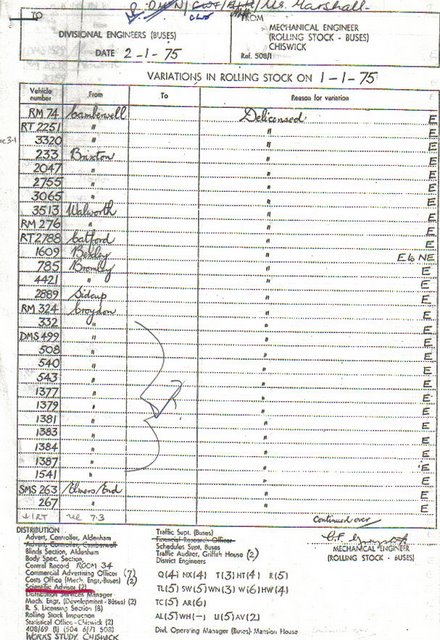 TO
FROM
DIVISIONAL ENGINEERS (BUSES)
MECHANICAL ENGINEER
(ROLLING STOCK - BUSES)
CHISWICK
DATE 2-1-75
Ref. 508/1
VARIATIONS IN ROLLING STOCK ON 1-1-75
Vehicle number From To Reason for variation
RM 74 Camberwell Delicensed E
RT 2251 " " E
3320 " " E
233 Brixton " E
2047 " " E
2755 " " E
3065 " " E
3513 Walworth " E
RM 276 " " E
RT 2788 Catford " E
1609 Bexley " E to NE
785 Bromley " E
4421 " " E
2889 Sidcup " E
RM 324 Croydon " E
332 " " E
DMS 499 " " E
508 " " E
540 " " E
543 " " E
1377 " " E
1379 " " E
1381 " " E
1383 " " E
1384 " " E
1387 " " E
1541 " " E
SMS 263 Elmers End " E
267 " " E
Continued over
DISTRIBUTION
Advert. Controller, Aldenham
Blinds Section, Aldenham
Body Spec. Section,
Central Record ROOM 34
Commercial Advertising Officer (7)
Costs Office (Mech. Engr. Buses) (2)
Scientific Advisor (2)
Mech. Engr. (Development - Buses) (2)
R. S. Licensing Section (8)
Rolling Stock Inspection
Statistical Office - Chiswick (2)
WORKS STUDY CHISWICK
Traffic Supt. (Buses)
Financial Research Officer
Schedules Supt. Buses
Traffic Auditor, Griffith House (2)
District Engineers
Q(4) NX(4) T(3) HT(4) R(5)
TL(5) SW(5) WN(3) W(6) HW(4)
TC(5) AR(6)
AL(5) WH(-) U(5) AV(2)
Divl. Operating Manager (Buses) Mansion House
MECHANICAL ENGINEER
(ROLLING STOCK - BUSES)